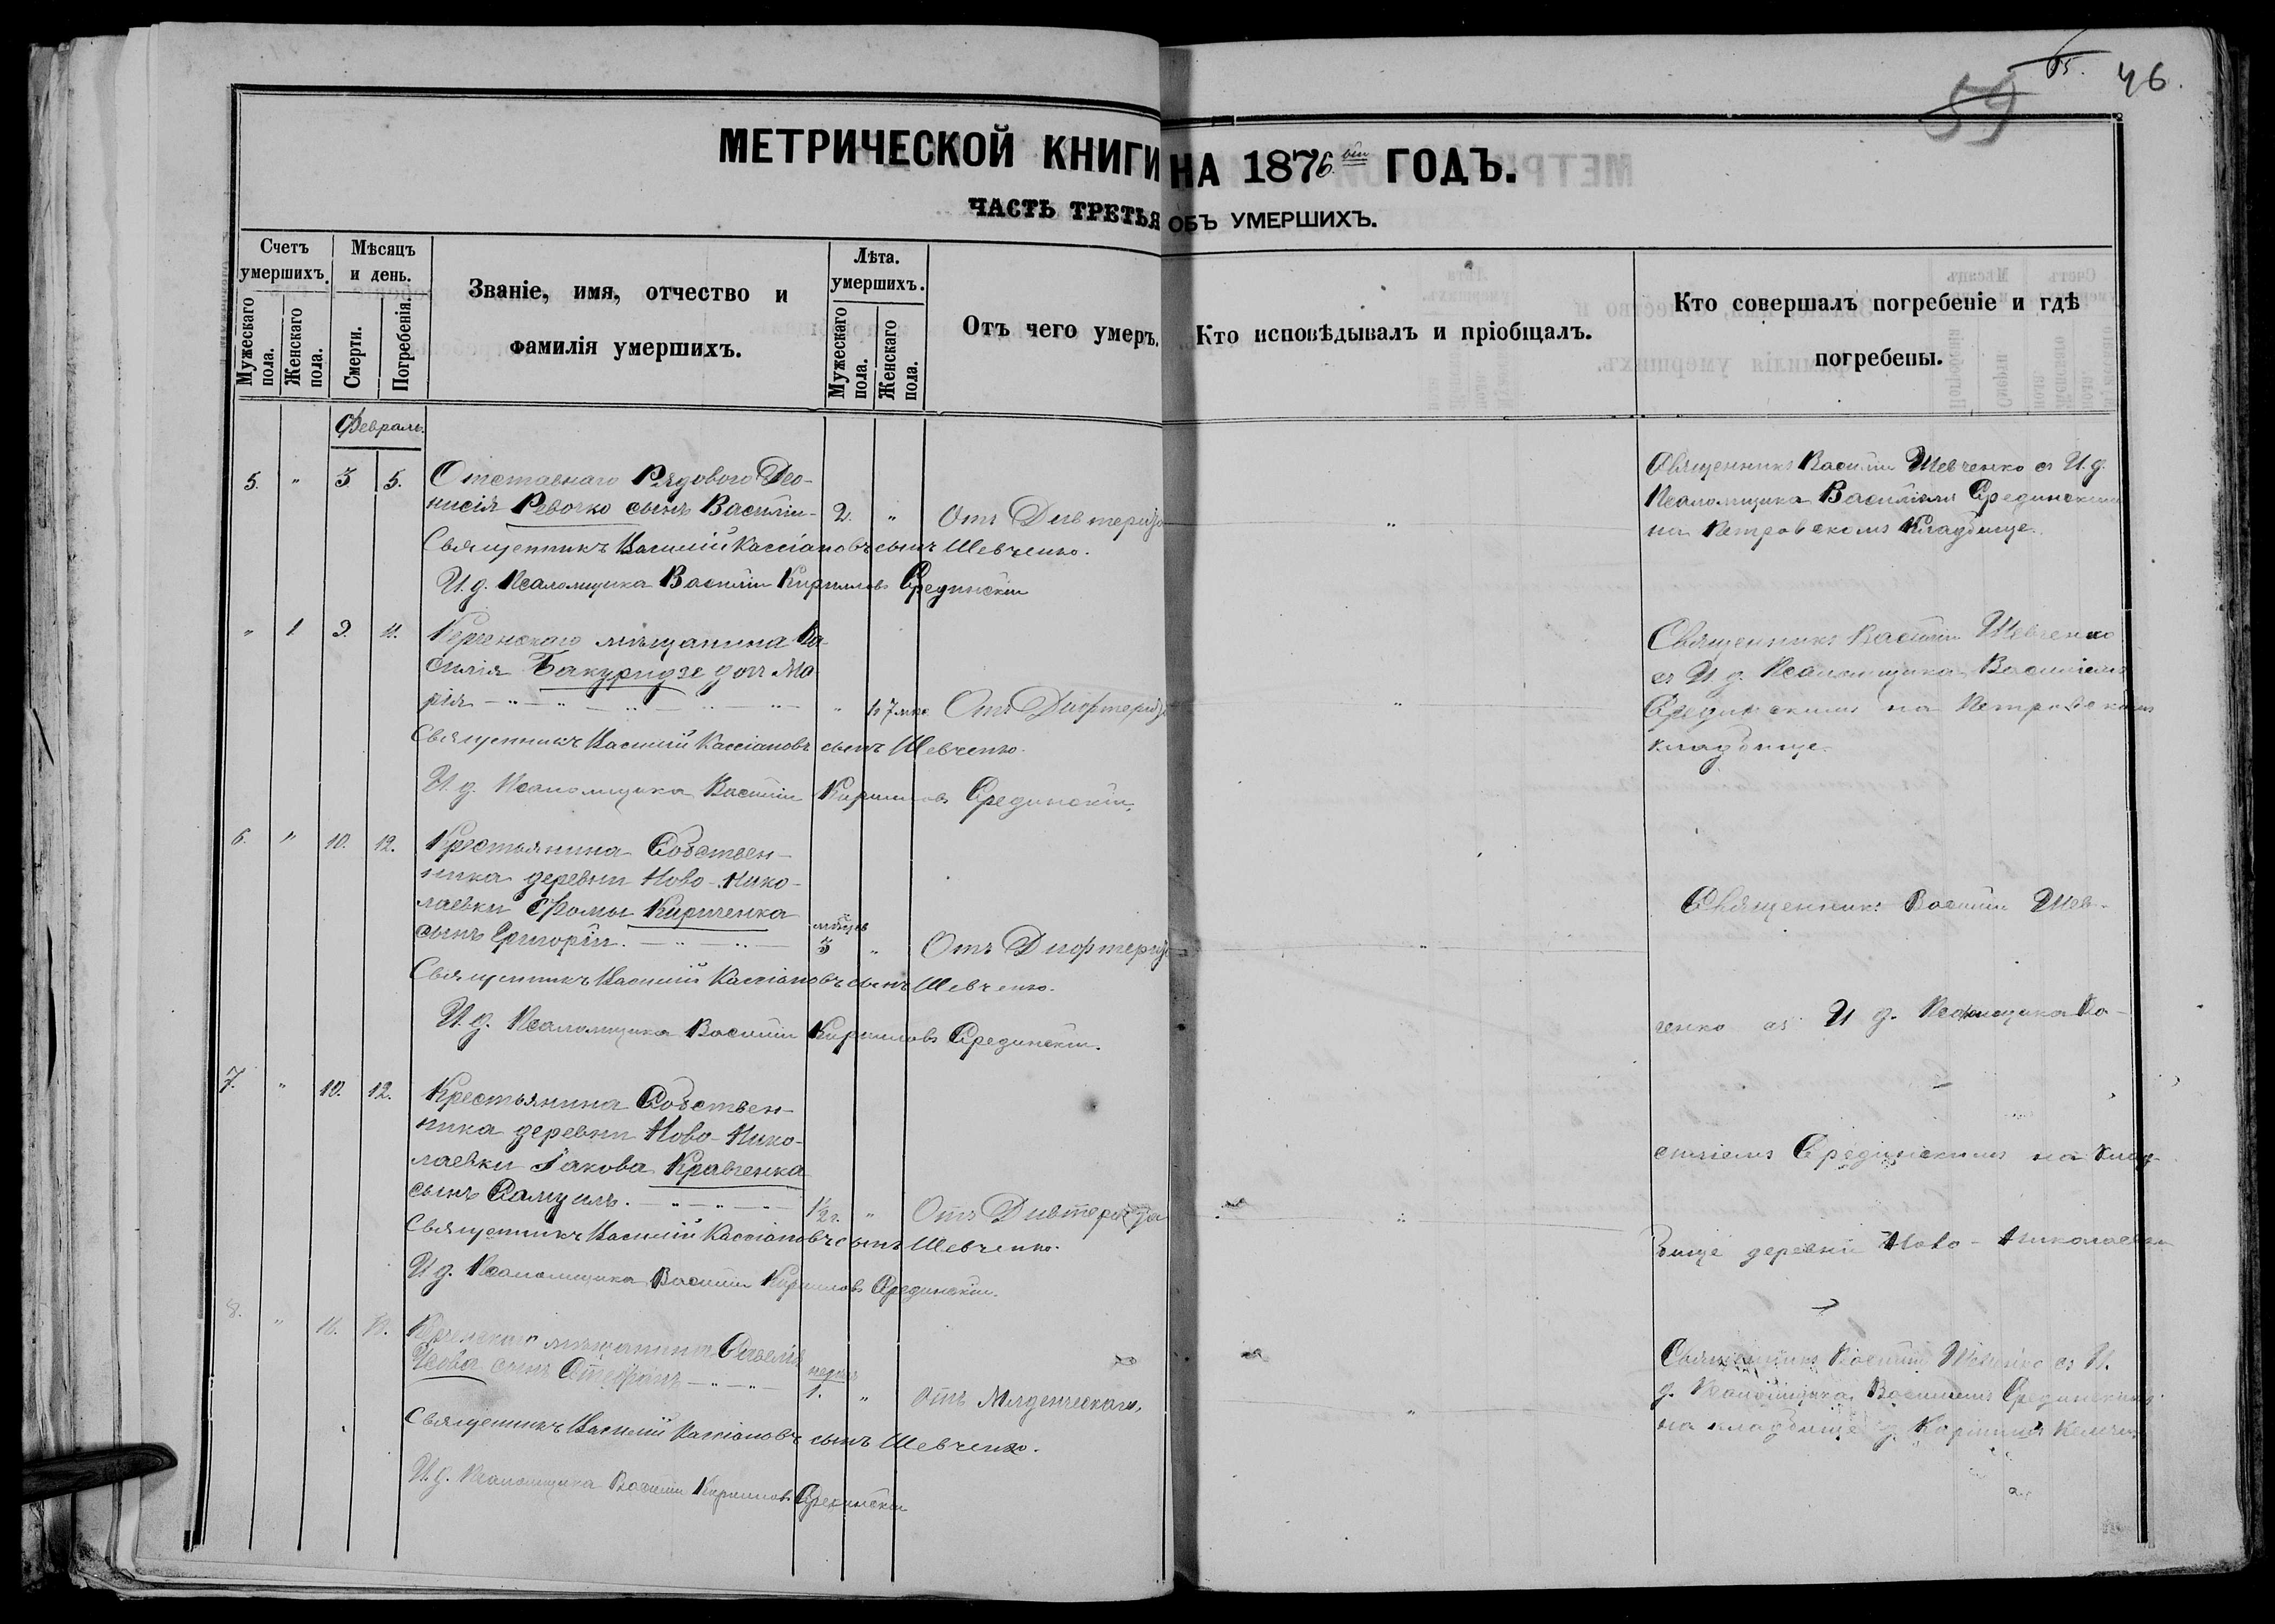 59 46.
МЕТРИЧЕСКОЙ КНИГИ НА 1876 ГОДЪ.
ЧАСТЬ ТРЕТЬЯ ОБЪ УМЕРШИХЪ.
Счетъ умершихъ.
Мужескаго пола.
Женскаго пола.
Мѣсяцъ и день.
Смерти.
Погребенія.
Званіе, имя, отчество и
фамилія умершихъ.
Лѣта. умершихъ.
Мужескаго пола.
Женскаго пола.
Отъ чего умеръ.
Кто исповѣдывалъ и пріобщалъ.
Кто совершалъ погребеніе и гдѣ
погребены.
Февраль.
5. " 3 5. Отставнаго Рядового Део-
нисія Ревочко сынъ Василій 2. " Отъ Дивтерида "
Священникъ Василій Кассіановъ сынъ Шевченко.
И. д. Псаломщика Василій Кирилловъ Срединскій
Священникъ Василій Шевченко съ И. д.
Псаломщика Василіемъ Срединскимъ
на Петровскомъ Кладбище.
" 1 9. 11. Керченскаго мѣщанина Ва-
силія Бакуридзе дочь Ма-
рія " 7 Отъ Дифтерида "
Священникъ Василій Кассіановъ сынъ Шевченко.
И. д. Псаломщика Василій Кирилловъ Срединскій.
Священникъ Василій Шевченко
съ И. д. Псаломщика Василіемъ
Срединскимъ на Петровскомъ
кладбище.
6. " 10. 12. Крестьянина Собствен-
ника деревни Ново-Нико-
лаевки Фомы Кириченка
сынъ Григорій. 3 " Отъ Дифтерида "
Священникъ Василій Кассіановъ сынъ Шевченко.
И. д. Псаломщика Василій Кирилловъ Срединскій.
7. " 10. 12. Крестьянина Собствен-
ника деревни Ново-Нико-
лаевки Іакова Кравченка
сынъ Самуилъ. 1/2 г. " Отъ Дивтерида "
Священникъ Василій Кассіановъ сынъ Шевченко.
И. д. Псаломщика Василій Кирилловъ Срединскій.
Священникъ Василій Шев-
ченко съ И. д. Псаломщика Ва-
силіемъ Срединскимъ на клад-
бище деревни Ново-Николаевки
8. " 11. Керченскаго мѣщанина Савелія
сынъ Стефанъ недѣль 1. " Отъ Младенческаго. "
Священникъ Василій Кассіановъ сынъ Шевченко.
И. д. Псаломщика Василій Кирилловъ Срединскій
Священникъ Василій Шевченко съ И.
д. Псаломщика Василіемъ Срединскимъ
на кладбище